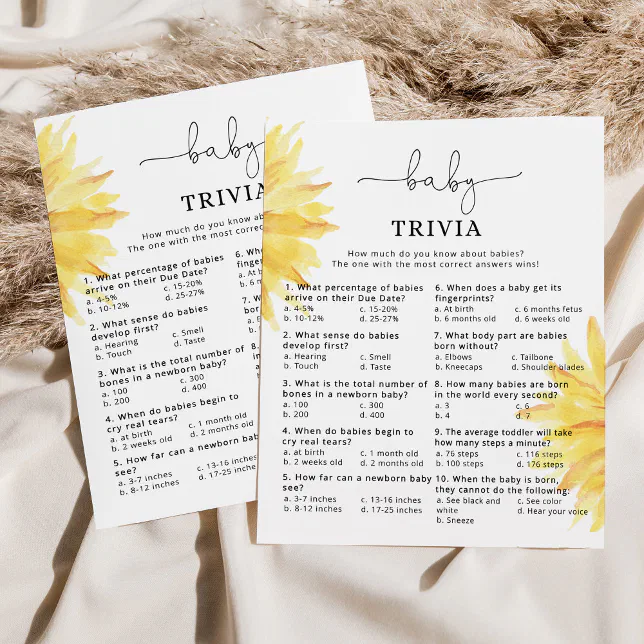 baby
TRIVIA
How much do you know abou
The one with the most correct
1. What percentage of babies
arrive on their Due Date?
a. 4-5% c. 15-20%
b. 10-12% d. 25-27%
2. What sense do babies
develop first?
a. Hearing c. Smell
b. Touch d. Taste
3. What is the total number of
bones in a newborn baby?
a. 100 c. 300
b. 200 d. 400
4. When do babies begin to
cry real tears?
a. at birth c. 1 month old
b. 2 weeks old d. 2 months old
5. How far can a newborn baby
see?
a. 3-7 inches c. 13-16 inches
b. 8-12 inches d. 17-25 inches
6. When
fingerp
a. At birth
b. 6 mon
7.
b
a.
b.
8.
baby
TRIVIA
How much do you know about babies?
The one with the most correct answers wins!
1. What percentage of babies
arrive on their Due Date?
a. 4-5% c. 15-20%
b. 10-12% d. 25-27%
2. What sense do babies
develop first?
a. Hearing c. Smell
b. Touch d. Taste
3. What is the total number of
bones in a newborn baby?
a. 100 c. 300
b. 200 d. 400
4. When do babies begin to
cry real tears?
a. at birth c. 1 month old
b. 2 weeks old d. 2 months old
5. How far can a newborn baby
see?
a. 3-7 inches c. 13-16 inches
b. 8-12 inches d. 17-25 inches
6. When does a baby get its
fingerprints?
a. At birth c. 6 months fetus
b. 6 months old d. 6 weeks old
7. What body part are babies
born without?
a. Elbows c. Tailbone
b. Kneecaps d. Shoulder blades
8. How many babies are born
in the world every second?
a. 3 c. 6
b. 4 d. 7
9. The average toddler will take
how many steps a minute?
a. 76 steps c. 116 steps
b. 100 steps d. 176 steps
10. When the baby is born,
they cannot do the following:
a. See black and c. See color
white d. Hear your voice
b. Sneeze